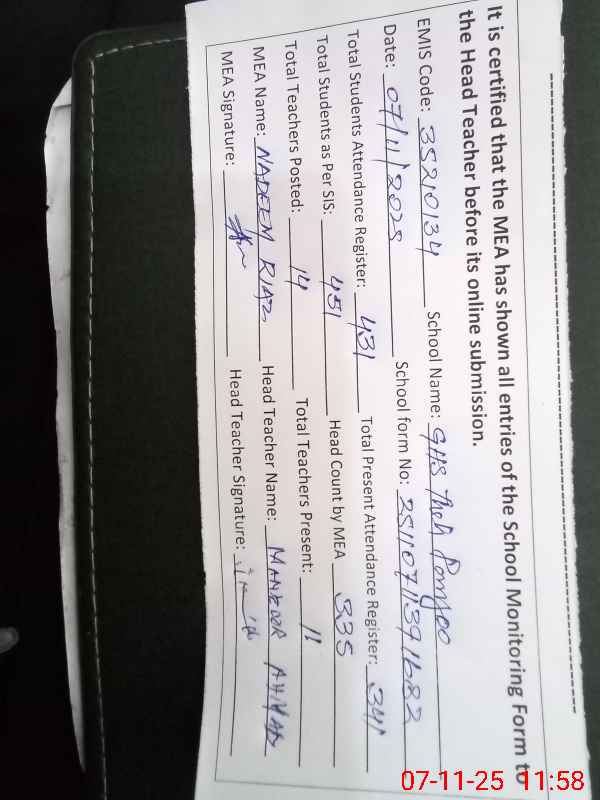 It is certified that the MEA has shown all entries of the School Monitoring Form to
the Head Teacher before its online submission.
EMIS Code: 35210134 School Name: GHS
Date: 07/11/2025 School form No: 251107113911682
Total Students Attendance Register: 431 Total Present Attendance Register: 341
Total Students as Per SIS: 451 Head Count by MEA 335
Total Teachers Posted: 14 Total Teachers Present: 11
MEA Name: NADEEM RIAZ Head Teacher Name: AHMAD
MEA Signature: Head Teacher Signature:
07-11-25 11:58